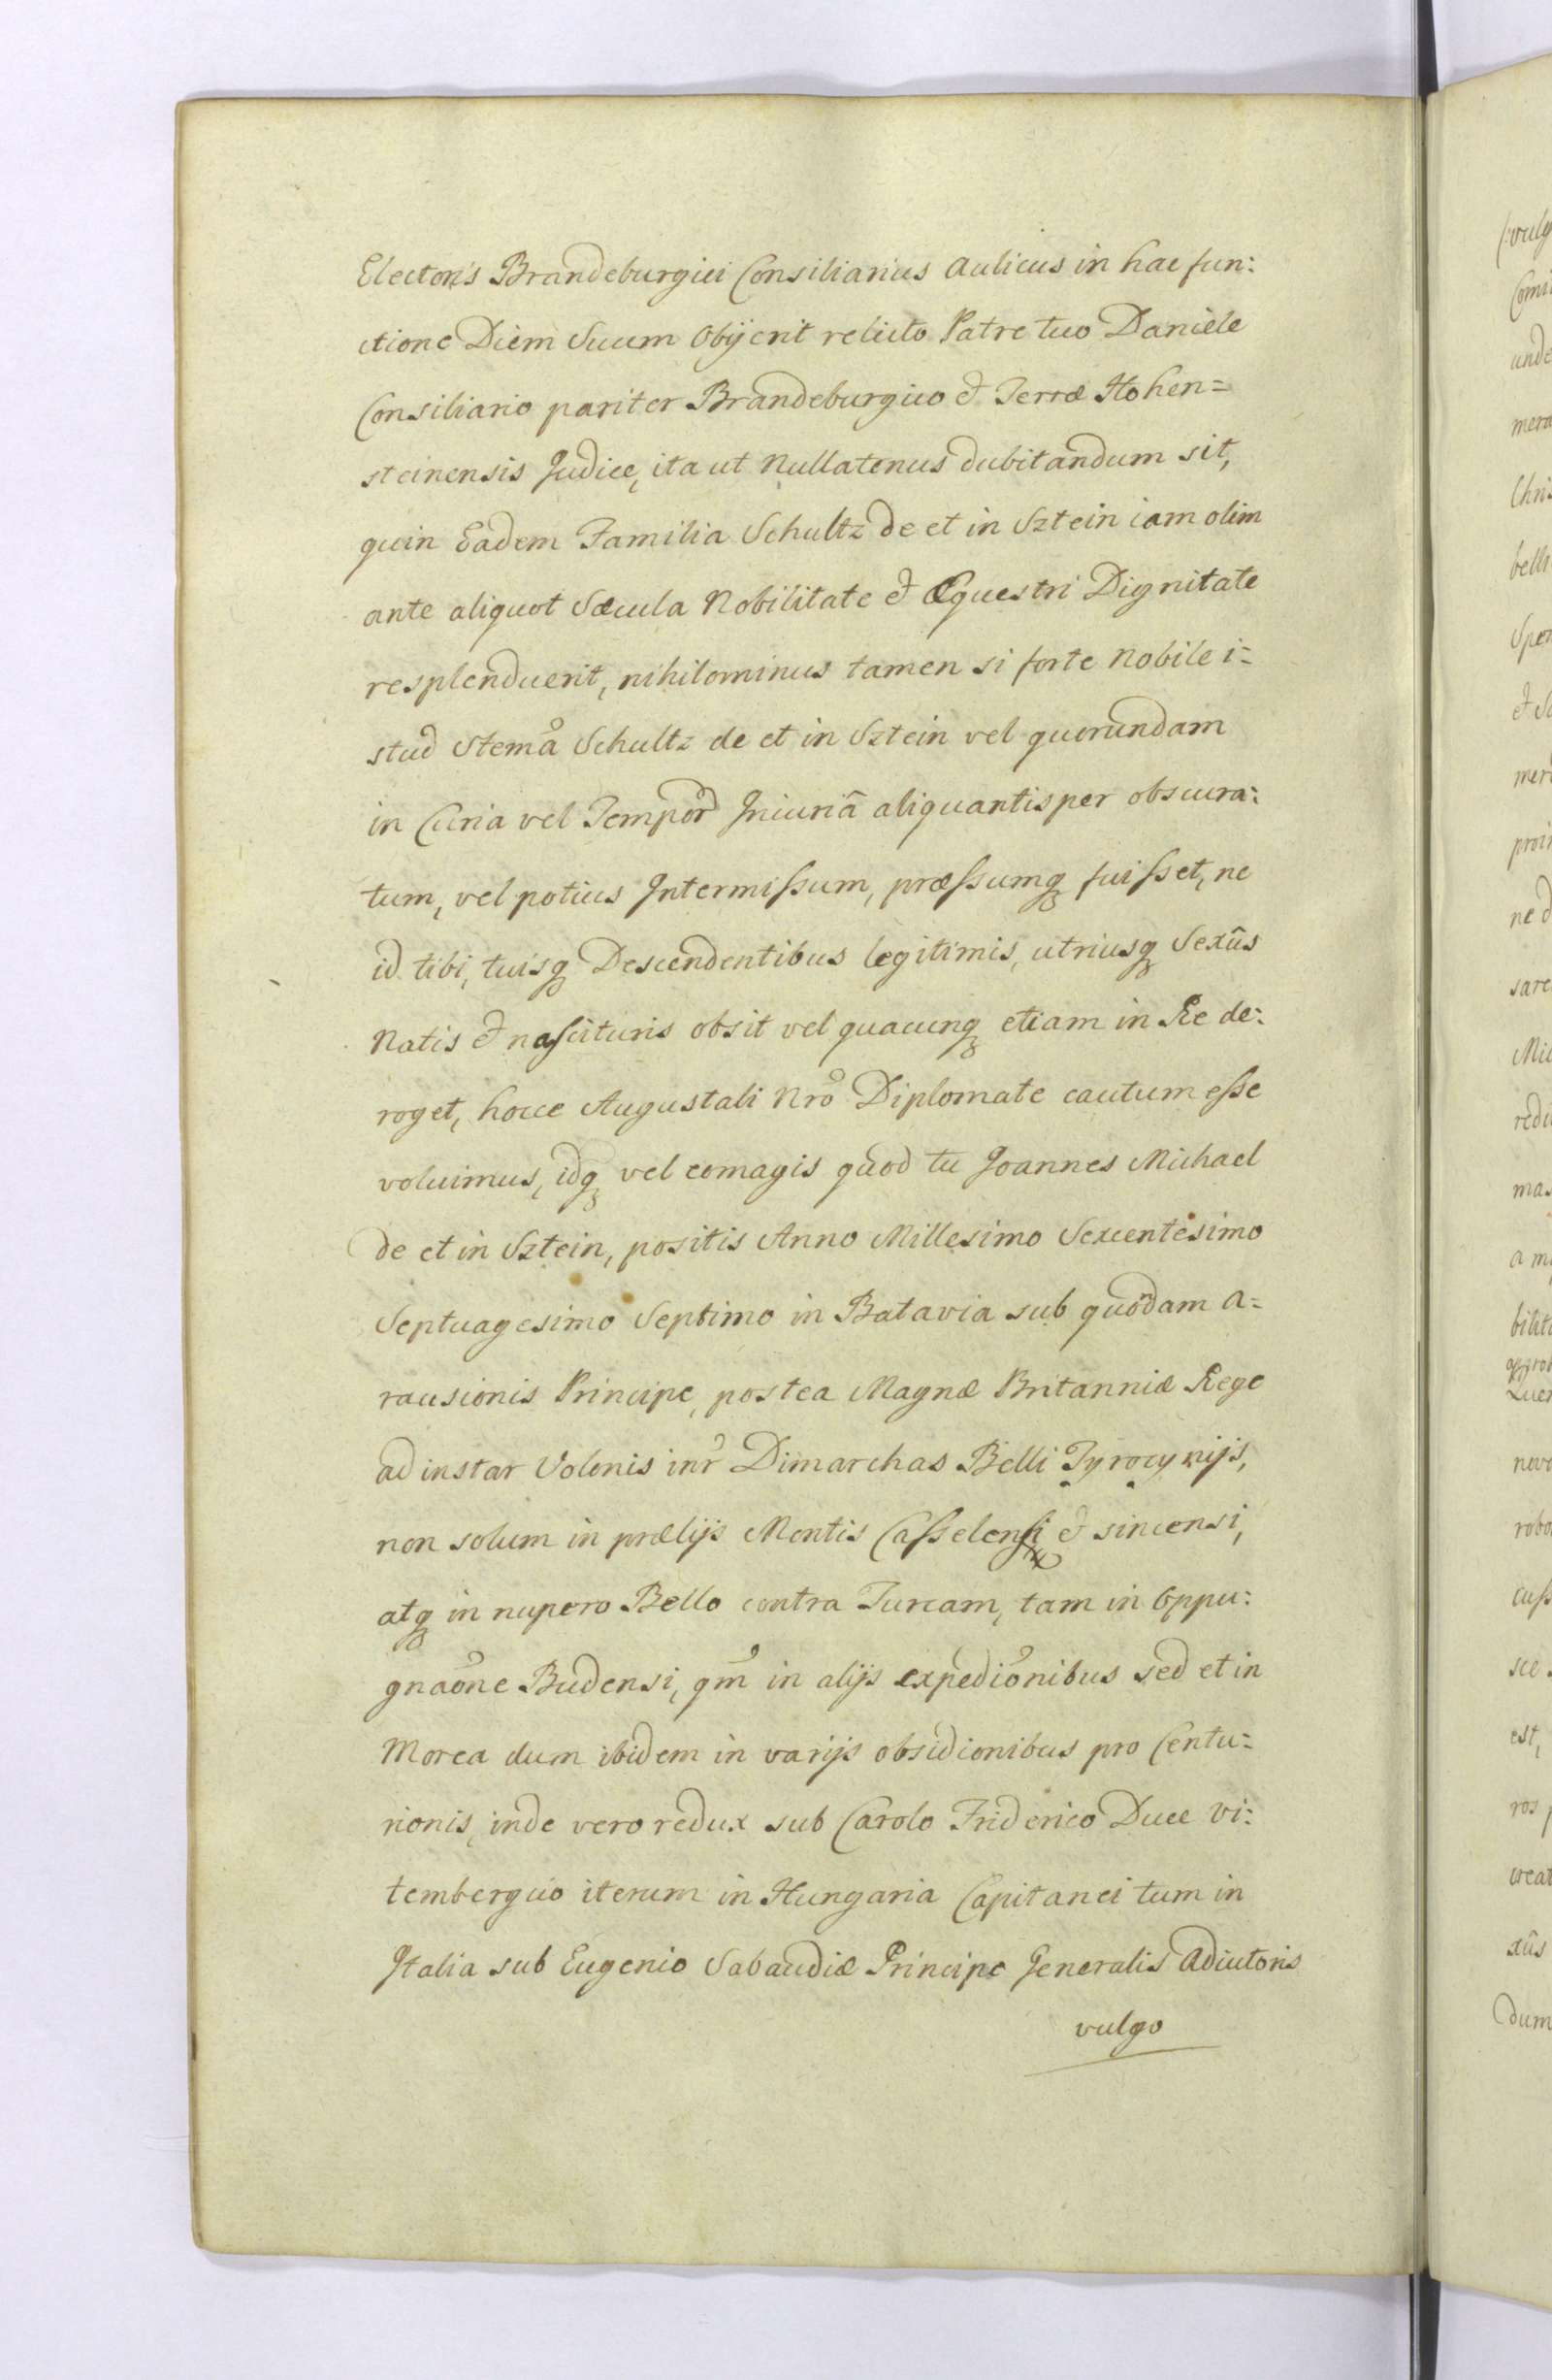 Electoris Brandeburgici Consiliarius Aulicus in hac fun:
ctione Diem Suum Obÿerit relicto Patre tuo Daniele
Consiliario pariter Brandeburgico & Terræ Hohen=
steinensis Judice, ita ut Nullatenus dubitandum sit,
quin Eadem Familia Schultz de et in Sztein iam olim
ante aliquot Sæcula Nobilitate & Equestri Dignitate
resplenduerit, nihilominus tamen si forte Nobile i=
stud Stema Schultz de et in Sztein vel quorundam
in Curia vel Tempor Iniuriâ aliquantisper obscura:
tum, vel potius Intermissum, præssumq fuisset, ne
id tibi, tuisq Descendentibus legitimis, utriusq Sexûs
Natis & nascituris obsit vel quacunq etiam in Re de:
roget, hocce Augustali Nro Diplomate cautum esse
voluimus, idq vel eomagis quod tu Joannes Michael
de et in Sztein, positis Anno Millesimo Sexcentesimo
Septuagesimo Septimo in Batavia sub quodam A=
rausionis Principe, postea Magnæ Britanniæ Rege
ad instar Volonis inr Dimarchas Belli Tyrocynijs,
non solum in prælijs Montis Casselensi & sincensi,
atq in nupero Bello contra Turcam, tam in Oppu:
gnaone Budensi, qm in alijs expedionibus sed et in
Morea dum ibidem in varijs obsidionibus pro Centu=
rionis, inde vero redux sub Carolo Friderico Duce Vi:
tembergico iterum in Hungaria Capitanei tum in
Italia sub Eugenio Sabaudiæ Principe Generalis Adiutoris
vulgo